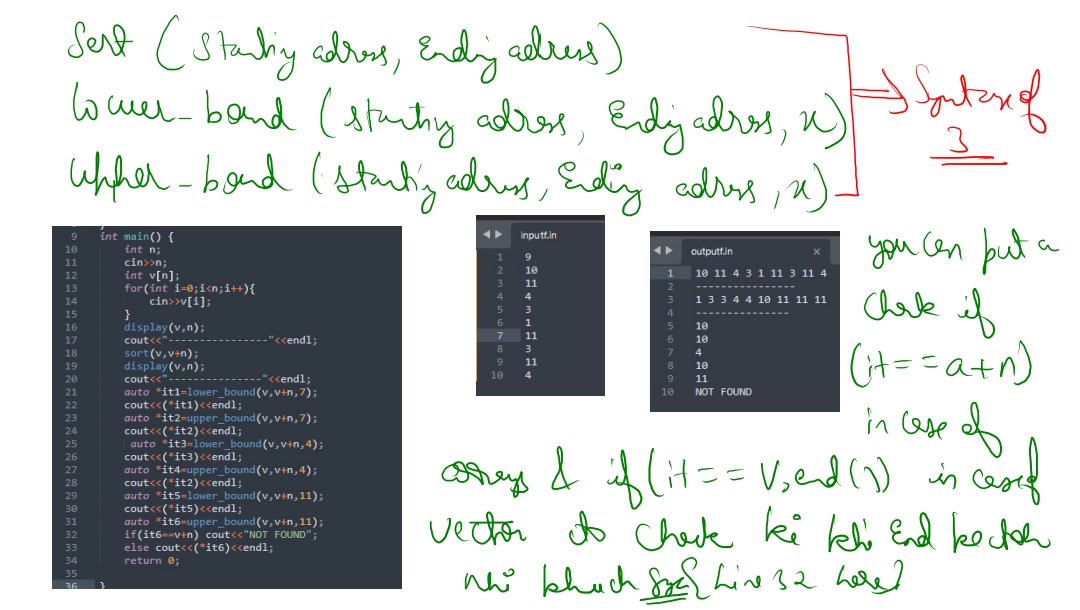 Sort ( Starting adress, Ending adress)
lower_bond ( starting adress, Ending adress, x)
Upper_bond (starting adress, Ending adress, x)
Syntax of
3
9 int main() {
10 int n;
11 cin>>n;
12 int v[n];
13 for(int i=0;i<n;i++){
14 cin>>v[i];
15 }
16 display(v,n);
17 cout<<"----------------"<<endl;
18 sort(v,v+n);
19 display(v,n);
20 cout<<"---------------"<<endl;
21 auto *it1=lower_bound(v,v+n,7);
22 cout<<(*it1)<<endl;
23 auto *it2=upper_bound(v,v+n,7);
24 cout<<(*it2)<<endl;
25 auto *it3=lower_bound(v,v+n,4);
26 cout<<(*it3)<<endl;
27 auto *it4=upper_bound(v,v+n,4);
28 cout<<(*it2)<<endl;
29 auto *it5=lower_bound(v,v+n,11);
30 cout<<(*it5)<<endl;
31 auto *it6=upper_bound(v,v+n,11);
32 if(it6==v+n) cout<<"NOT FOUND";
33 else cout<<(*it6)<<endl;
34 return 0;
35
36 }
inputf.in
1 9
2 10
3 11
4 4
5 3
6 1
7 11
8 3
9 11
10 4
outputf.in ×
1 10 11 4 3 1 11 3 11 4
2 ----------------
3 1 3 3 4 4 10 11 11 11
4 ---------------
5 10
6 10
7 4
8 10
9 11
10 NOT FOUND
you can put a
check if
(it==a+n)
in case of
arrays & if(it==v.end()) in case of
vector to check ki khi End
nhi {Line 32 here}